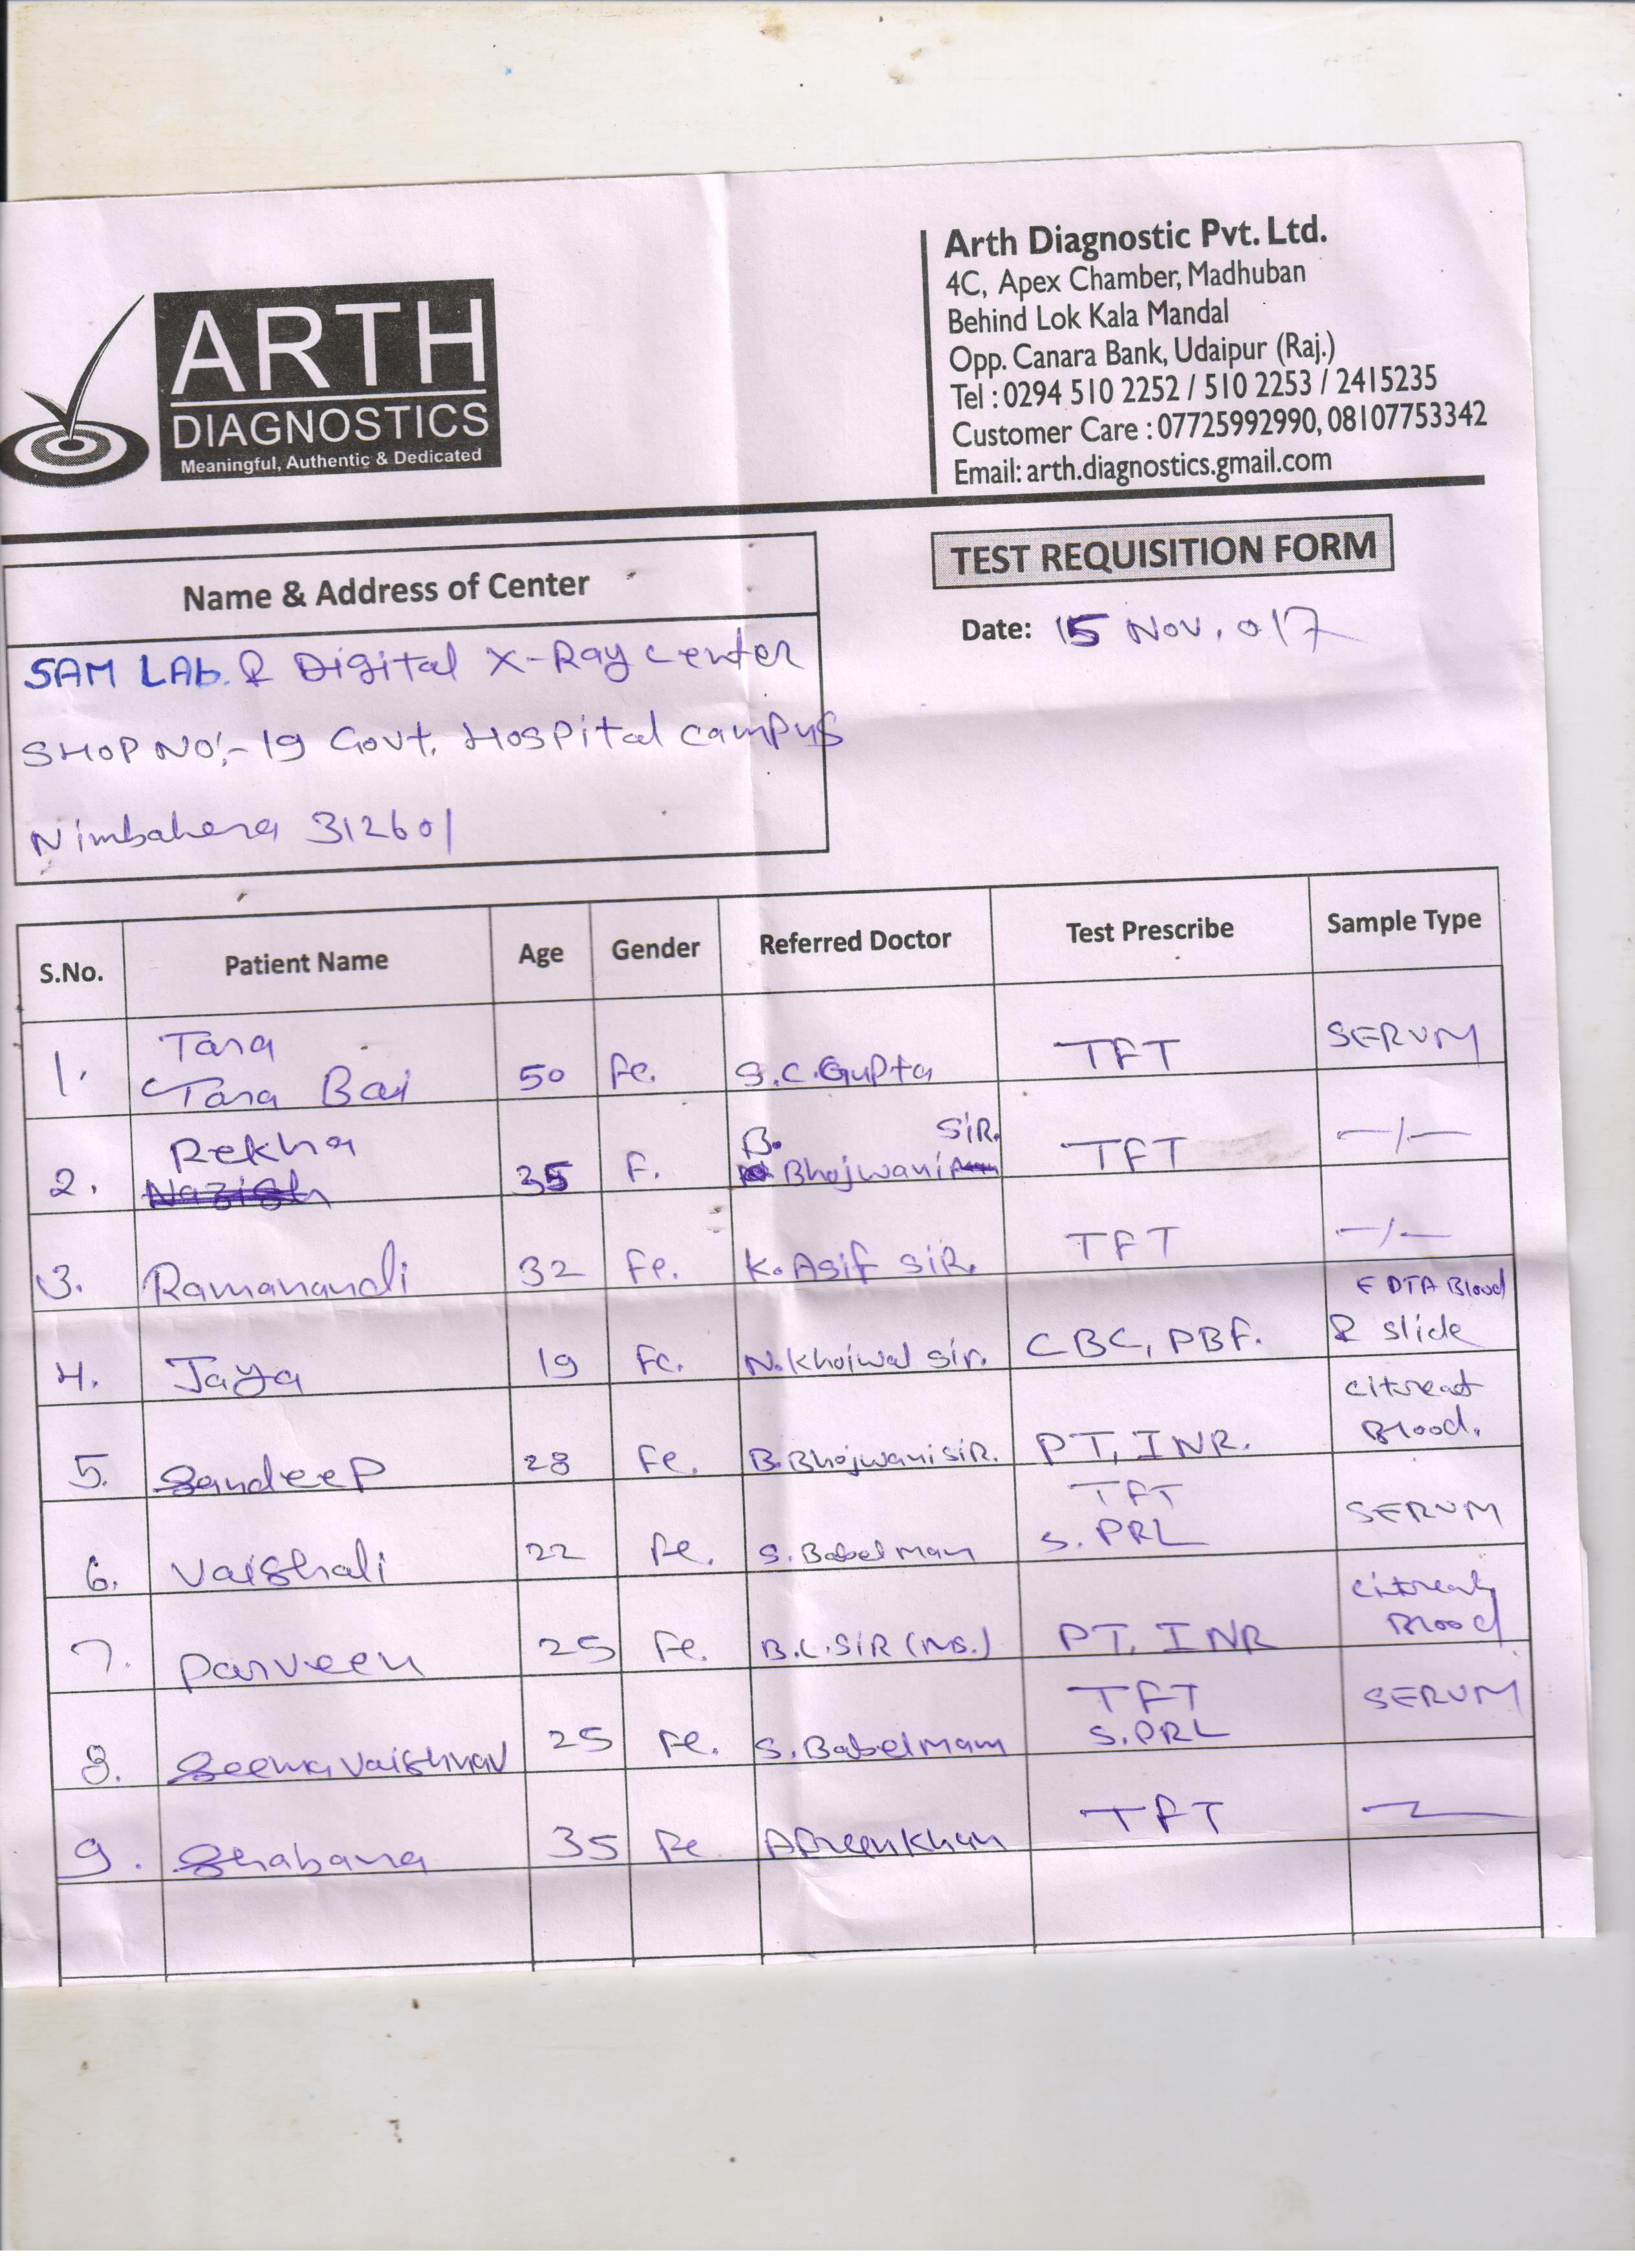 ARTH
DIAGNOSTICS
Meaningful, Authentic & Dedicated
Arth Diagnostic Pvt. Ltd.
4C, Apex Chamber, Madhuban
Behind Lok Kala Mandal
Opp. Canara Bank, Udaipur (Raj.)
Tel : 0294 510 2252 / 510 2253 / 2415235
Customer Care : 07725992990, 08107753342
Email: arth.diagnostics.gmail.com
TEST REQUISITION FORM
Date: 15 Nov. 017
Name & Address of Center
SAM LAb. & Digital X-Ray center
SHOP NO:- 19 Govt. Hospital campus
Nimbahera 312601
S.No. Patient Name Age Gender Referred Doctor Test Prescribe Sample Type
Tara
1. Tara Bai 50 Fe. S.C. Gupta TFT SERUM
Rekha B. SIR.
2. 35 F. Bhojwani TFT —/—
3. Ramanandi 32 Fe. K. Asif SIR. TFT —/—
EDTA Blood
4. Jaya 19 Fe. N. Khoiwal Sir. CBC, PBF. & slide
citreat
5. Sandeep 28 Fe. B. Bhojwani SIR. PT, INR. Blood.
TFT
6. Vaishali 22 Fe. S. Babel mam S. PRL SERUM
citreat
7. Parveen 25 Fe. B.L. SIR (MS.) PT, INR Blood
TFT SERUM
8. Seema Vaishnav 25 Fe. S. Babel mam S. PRL
9. Shabana 35 Fe. Afreen Khan TFT